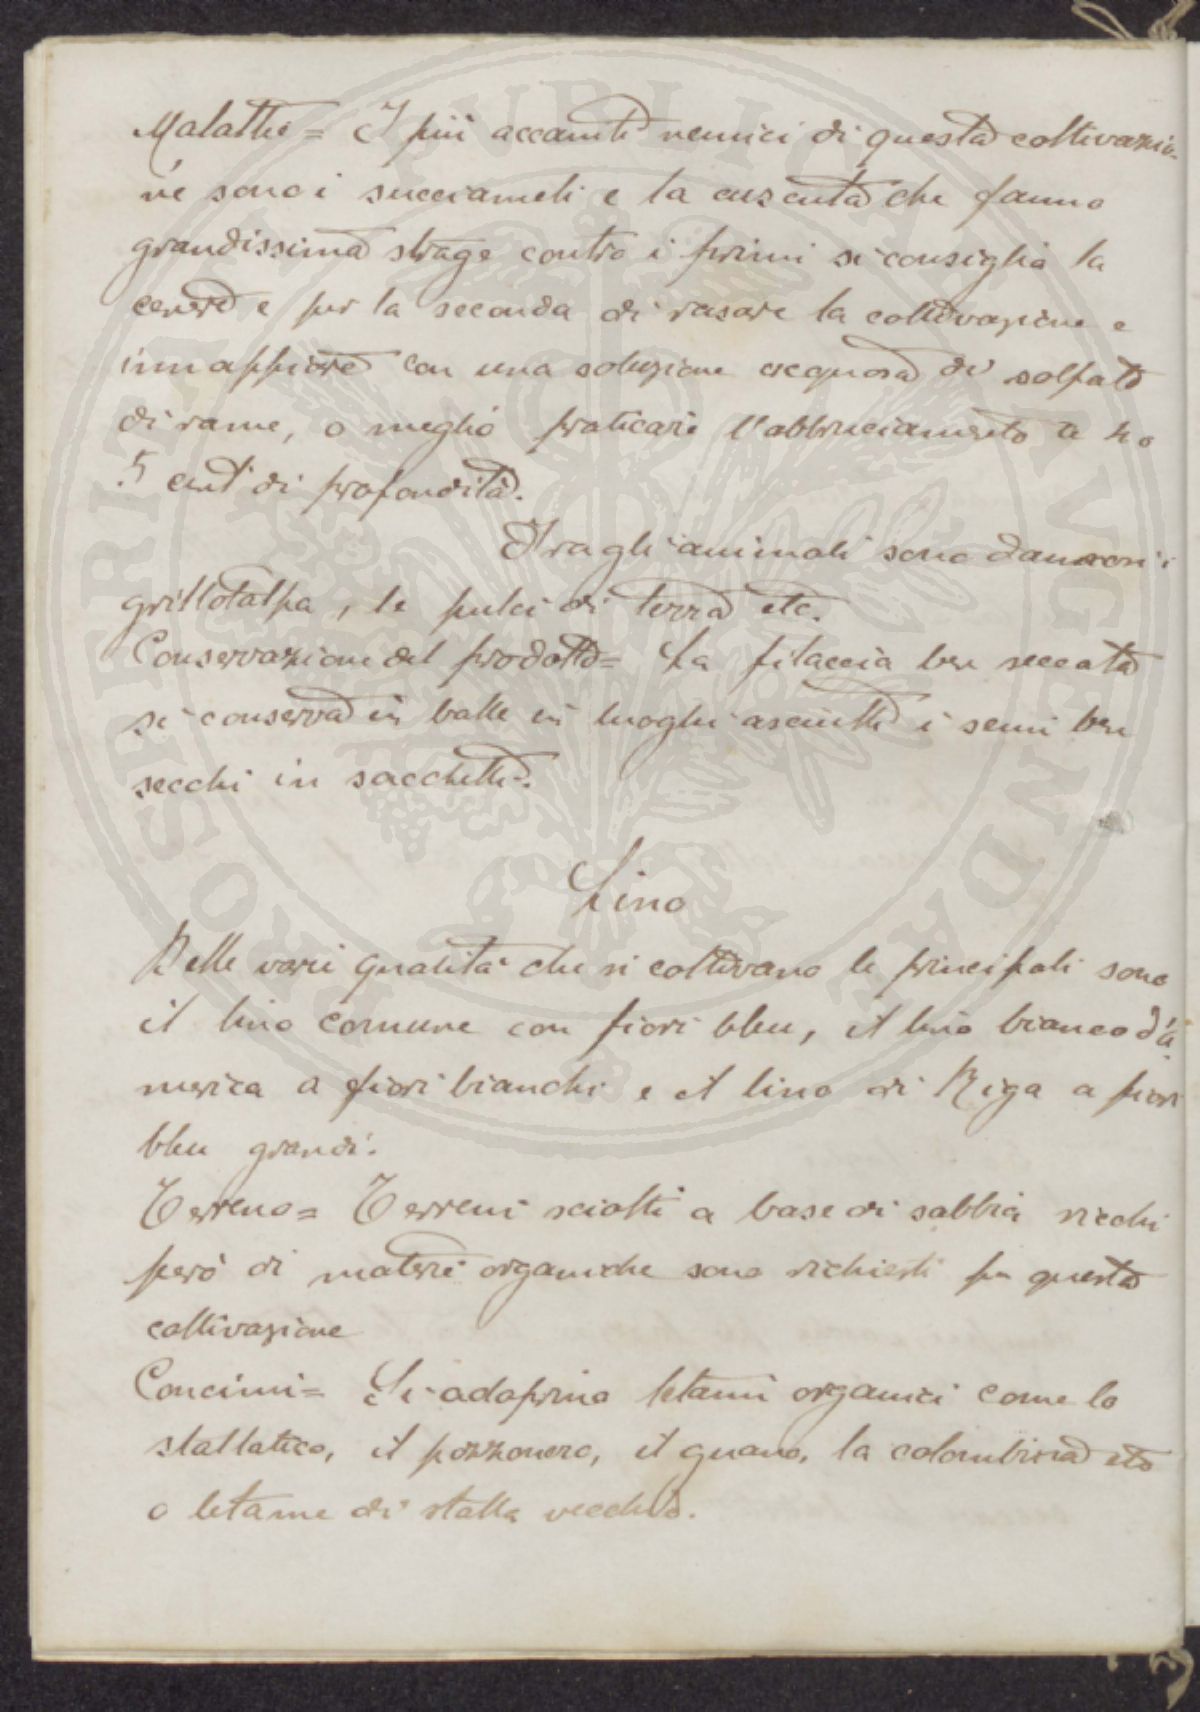 Malattie = I più accaniti nemici di questa coltivazio-
ne sono i succiameli e la cuscuta che fanno
grandissima strage contro i primi si consiglia la
cenere e per la seconda di rasare la coltivazione e
innaffiare con una soluzione acquosa di solfato
di rame, o meglio praticare l'abbruciamento a 4 o
5 cent di profondità.
Fra gli animali sono dannosi i
grillotalpa, le pulci di terra etc.
Conservazione del prodotto = La filaccia ben seccata
si conserva in balle in luoghi asciutti i semi ben
secchi in sacchetti.
Lino
Delle varie qualità che si coltivano le principali sono
il lino comune con fiori bleu, il lino bianco d'a
merica a fiori bianchi e il lino di Riga a fiori
bleu grandi.
Terreno = Terreni sciolti a base di sabbia ricchi
però di materie organiche sono richiesti per questa
coltivazione
Concimi = Si adoprino letami organici come lo
stallatico, il pozzonero, il guano, la colombina etc
o letame di stalla vecchio.
PUBLICAE AUGENDAE PROSPERITATI